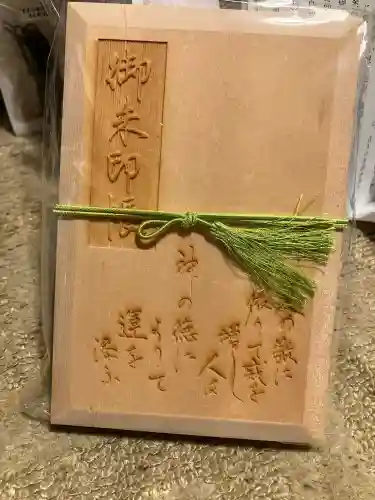 御朱印帳
の敬に
りて威を
増し
人は
神の徳に
よりて
運を
添ふ